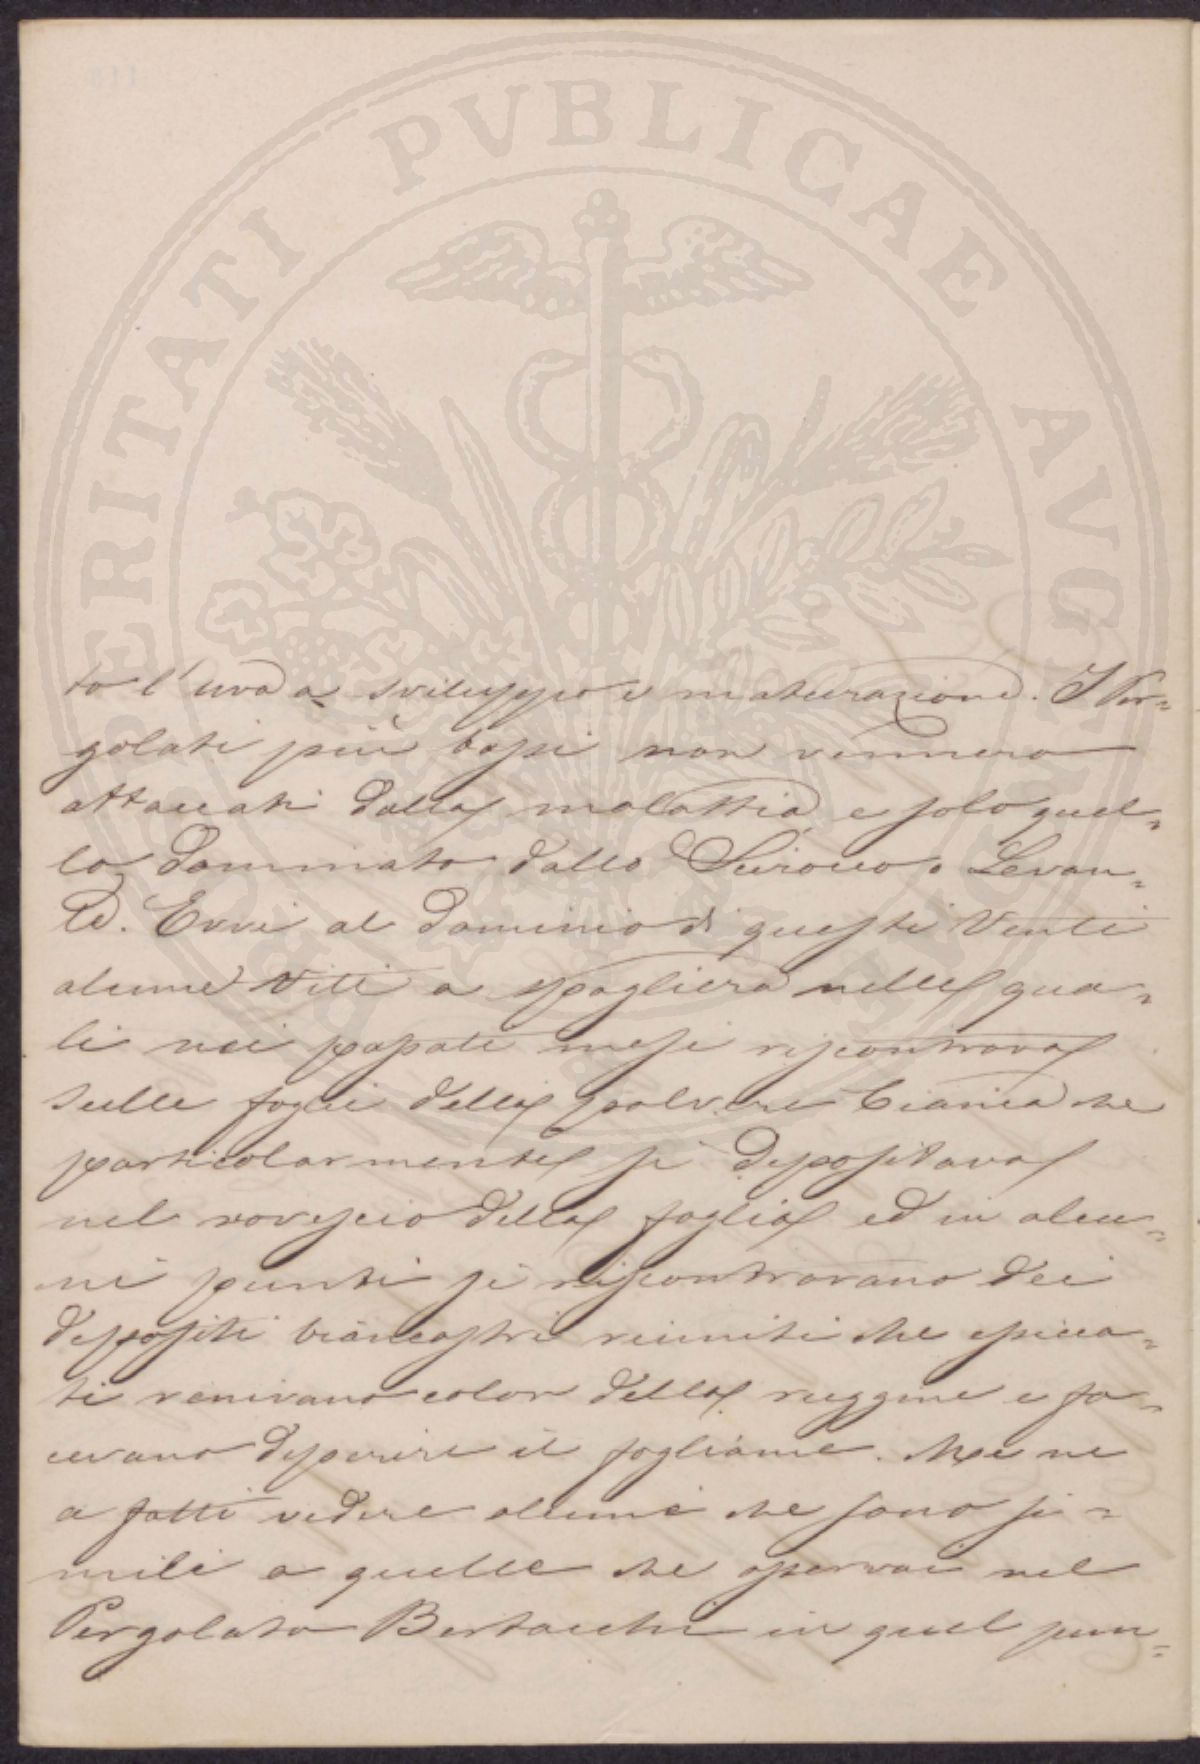 PROSPERITATI PVBLICAE AVGENDAE
to l'uva a sviluppo e maturazione. I Per=
golati più bassi non vennero
attaccati dalla malattia e solo quel=
lo dominato dallo Scirocco o Levan=
te. Evvi al dominio di questi Venti
alcune Viti a spagliera nelle qua=
li nei passati mesi riscontrava
sulle foglie della polvere bianca che
particolarmente si depositava
nel rovescio della foglia ed in alcu=
ni punti si riscontravano dei
depositi biancastri riuniti che spicca=
ti venivano color della ruggine e fa=
cevano deperire il fogliame. Me ne
a fatti vedere alcuni che sono si=
mili a quelle che osservai nel
Pergolato Bertacchi in quel pun=